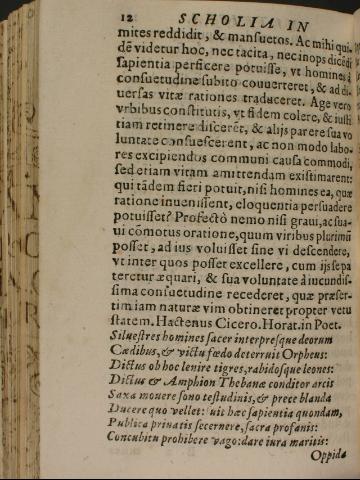 12 SCHOLIA IN
mites reddidit, & mansuetos. Ac mihi qui-
dē videtur hoc, nec tacita, nec inops dicēdi
sapientia perficere potuisse, vt homines à
consuetudine subito couuerteret, & ad di-
uersas vitæ rationes traduceret. Age verò
vrbibus constitutis, vt fidem colere, & iusti-
tiam retinere discerēt, & alijs parere sua vo
luntate consuescerent, ac non modo labo-
res excipiendos communi causa commodi,
sed etiam vitam amittendam existimarent:
qui tādem fieri potuit, nisi homines ea, quæ
ratione inuenissent, eloquentia persuadere
potuisset? Profectò nemo nisi graui, ac sua-
ui cōmotus oratione, quum viribus plurimū
posset, ad ius voluisset sine vi descendere,
vt inter quos posset excellere, cum ijs se pa
teretur æquari, & sua voluntate à iucundis-
sima consuetudine recederet, quæ præser-
tim iam naturæ vim obtineret propter vetu
statem. Hactenus Cicero. Horat. in Poet.
Siluestres homines sacer interpresque deorum
Cædibus, & victu fœdo deterruit Orpheus:
Dictus ob hoc lenire tigres, rabidosque leones:
Dictus & Amphion Thebanæ conditor arcis
Saxa mouere sono testudinis, & prece blanda
Ducere quo vellet: fuit hæc sapientia quondam,
Publica priuatis secernere, sacra profanis:
Concubitu prohibere vago: dare iura maritis:
Oppida